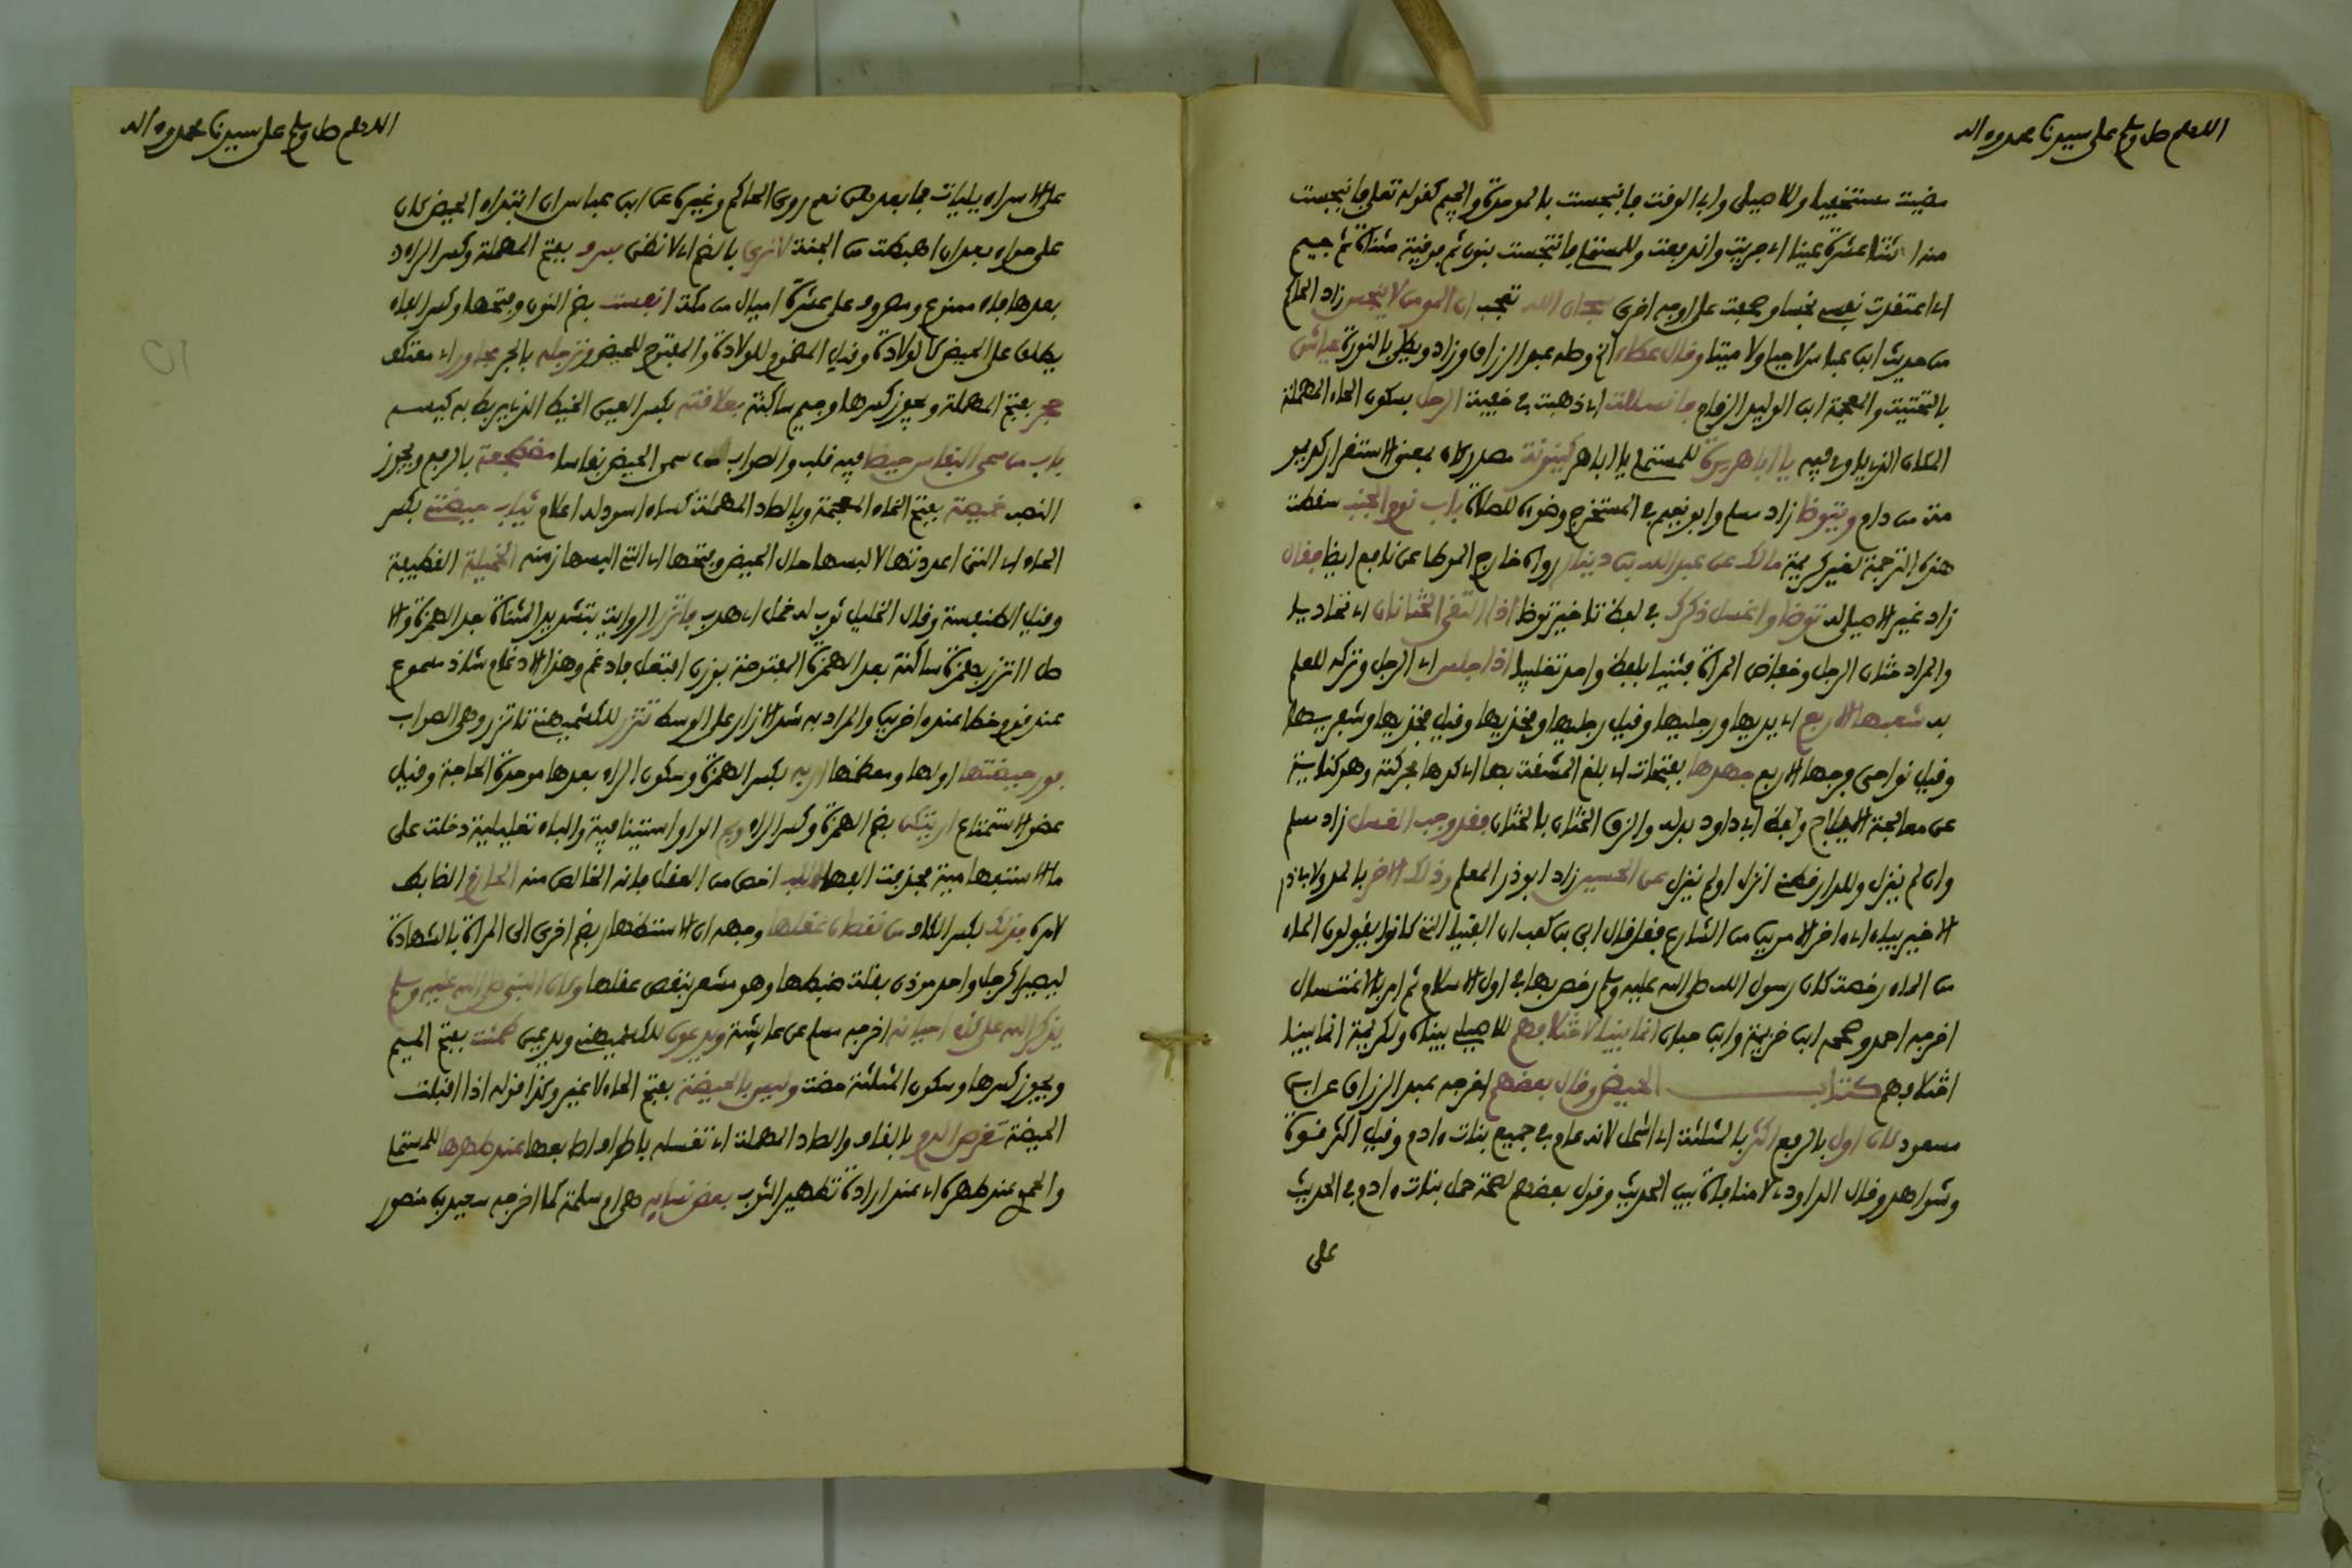 اللهم صل وسلم على سيدنا محمد وءاله
مضيت مستخفيا وللاصيلى وابى الوقت فانبجست بالموحدة والجيم كقوله تعلى فانبجست
منه اثنتا عشرة عينا اى جريت واندفعت وللمستملى فانتجست بنون ثم فوقية مثناة ثم جيم
اى اعتقدت نفسى نجسا وصحبت على اوجه اخرى سبحان الله تعجب ان المومن لا ينجس زاد الحاكم
من حديث ابن عباس لا حيا ولا ميتا وقال عطاء الخ وصله عبد الرزاق وزاد ويطلى بالنورة عياش
بالتحتية والمعجمة ابن الوليد الرقام فانسللت اى ذهبت فى خفية الرحل بسكون الحاء المهملة
المكان الذى ياوى فيه يا ابا هريرة للمستملى يا ابا هر كينونة مصدر كان بمعنى الاستقرار كديمو
مة من دام ويتوضا زاد مسلم وابو نعيم فى المستخرج وضوءه للصلاة باب نوم الجنب سقطت
هذه الترجمة لغير كريمة مالك عن عبد الله بن دينار رواه خارج الموطا عن نافع ايضا فقال
زاد غير الاصيلى له توضا واغسل ذكرك فى لفظ تاخير توضا اذا التقى الختانان اى تحاذيا
والمراد ختان الرجل وخفاض المراة فثنيا بلفظ واحد تغليبا اذا جلس اى الرجل وتركه للعلم
به شعبها الاربع اى يديها ورجليها وقيل رجليها وفخذيها وقيل فخذيها وشفريها
وقيل نواحى فرجها الاربع جهدها بفتحات اى بلغ المشقة بها اى كدها بحركته وهو كناية
عن معالجة الايلاج ولفظ ابى داود بدله والزق الختان بالختان فقد وجب الغسل زاد مسلم
وان لم ينزل وللدارقطنى انزل او لم ينزل عن الحسين زاد ابوذر المعلم وذلك الاخر بالمد ولابى ذر
الاخير بياء اى ءاخر الامرين من الشارع فقد قال ابى بن كعب ان الفتيا التى كانوا يقولون الماء
من الماء رخصة كان رسول الله صلى الله عليه وسلم رخص بها فى اول الاسلام ثم امر بالاغتسال
اخرجه احمد وصححه ابن خزيمة وابن حبان انما بينا لاختلافهم للاصيلى بيناه ولكريمة انما بينا
اختلافهم كتاب الحيض وقال بعضهم اخرجه عبد الرزاق عن ابن
مسعود كان اول بالرفع اكثر بالمثلثة اى اشمل لانه عام فى جميع بنات ءادم وقيل اكثر قوة
وشواهد وقال الداودى لا منافاة بين الحديث وقول بعضهم لصحة حمل بنات ءادم فى الحديث
على
اللهم صل وسلم على سيدنا محمد وءاله
على الاسراءيليات فما بعدهن نعم روى الحاكم وغيره عن ابن عباس ان ابتداء الحيض كان
على حواء بعد ان اهبطت من الجنة لا نرى بالضم اى لا نظن بسرف بفتح المهملة وكسر الراء
بعدها فاء ممنوع ومصروف على عشرة اميال من مكة انفست بضم النون وفتحها وكسر الفاء
يطلق على الحيض كالولادة وقيل المضموم للولادة والمفتوح للحيض وترجله بالجر مجاور اى معتكف
حجر بفتح المهملة ويجوز كسرها وجيم ساكنة بعلاقته بكسر العين الخيط الذى يربط به كيسه
باب من سمى النفاس حيضا فيه قلب والصواب من سمى الحيض نفاسا مضطجعة بالرفع ويجوز
النصب خميصة بفتح الخاء المعجمة وبالصاد المهملة كساء اسود له اعلام ثياب حيضتى بكسر
الحاء اى التى اعددتها لالبسها حال الحيض وبفتحها اى التى البسها زمنه الخميلة القطيفة
وقيل الطنفسة وقال الخليل ثوب له خمل اى هدب فاتزر الرواية بتشديد المثناة بعد الهمزة والا
صل ااتزر بهمزة ساكنة بعد الهمزة المفتوحة بوزن افتعل فادغم وهذا الادغام شاذ مسموع
عند قوم وخطا عند ءاخرين والمراد به شد الازار على الوسط تتزر للكشميهنى تاتزر وهى الصواب
فور حيضتها اولها ومعظمها اربه بكسر الهمزة وسكون الراء بعدها موحدة الحاجة وقيل
عضو الاستمتاع اريتكن بضم الهمزة وكسر الراء وبم الواو استينافية والباء تعليلية دخلت على
ما الاستفهامية فحذفت الفها اللب اخص من العقل فانه الخالص منه الحازم الضابط
لامره فذلك بكسر الكاف من نقصان عقلها وجهه ان الاستظهار بضم اخرى الى المراة بالشهادة
ليصيرا كرجل واحد موذن بقلة ضبطها وهو مشعر بنقص عقلها وكان النبى صلى الله عليه وسلم
يذكر الله على كل احيانه اخرجه مسلم عن عايشة ويدعون للكشميهنى ويدعين طمثت بفتح الميم
ويجوز كسرها وسكون المثلثة حضت وليس بالحيضة بفتح الحاء لا غير وكذا قوله اذا اقبلت
الحيضة تقرص الدم بالقاف والصاد المهملة اى تغسله باطراف اصابعها عند طهرها للمستملى
والحموى عند طهره اى عند ارادة تطهير الثوب بعض نسايه هى ام سلمة كما اخرجه سعيد بن منصور